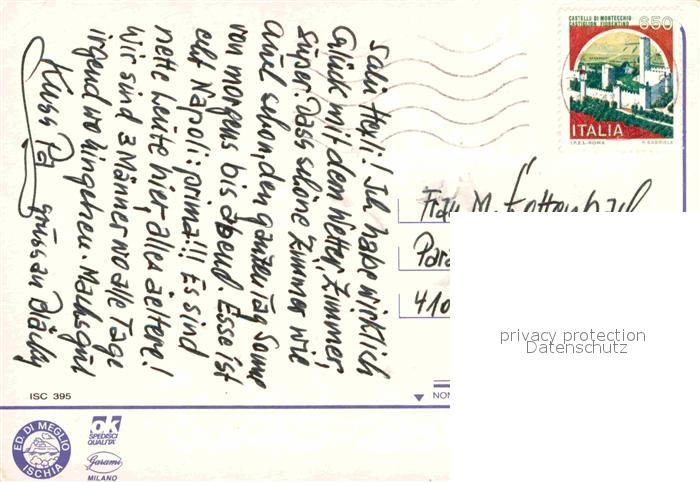 Salü Heyli! Ich habe wirklich
Glück mit dem Wetter, Zimmer,
Super. Dass schöne Zimmer wie
auch schon, den ganzen Tag Sonne
von morgens bis Abend. Esse ist
elf Napoli: prima!!! Es sind
nette Leute hier, alles aeltere!
Wir sind 3 Männer wo alle Tage
irgend wo hingehen. Machs gut
Kuss Pa gruss an
CASTELLO DI MONTECCHIO
CASTIGLION FIORENTINO
650
ITALIA
I.P.Z.S.-ROMA
Frau M.
Para
410
privacy protection
Datenschutz
ISC 395
NON
ED. DI MEGLIO
ISCHIA
OK
SPEDISCI
QUALITA'
Garami
MILANO